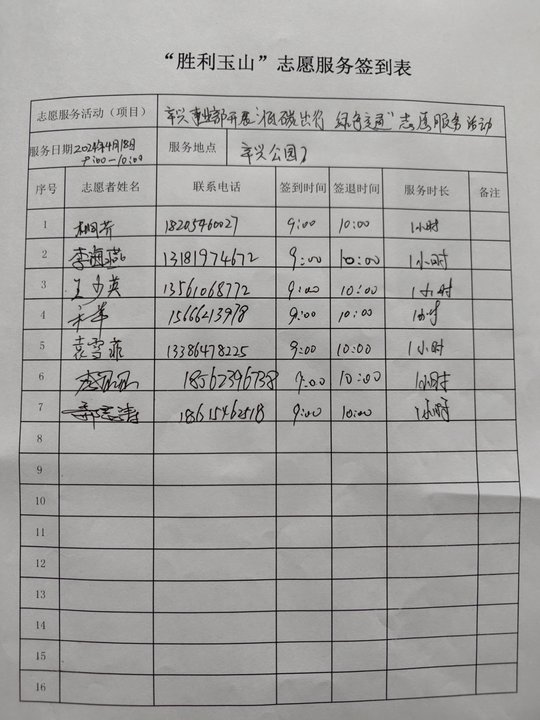 “胜利玉山”志愿服务签到表
志愿服务活动（项目） 辛兴事业部开展“低碳出行 绿色交通”志愿服务活动
服务日期 2024年4月18日 9:00—10:00 服务地点 辛兴公园
序号 志愿者姓名 联系电话 签到时间 签退时间 服务时长 备注
1 18205460027 9:00 10:00 1小时
2 李海燕 13181974672 9:00 10:00 1小时
3 王少英 13561068772 9:00 10:00 1小时
4 9:00 10:00 1小时
5 袁雪菲 13386478225 9:00 10:00 1小时
6 18562396738 9:00 10:00 1小时
7 18615462518 9:00 10:00 1小时
8
9
10
11
12
13
14
15
16